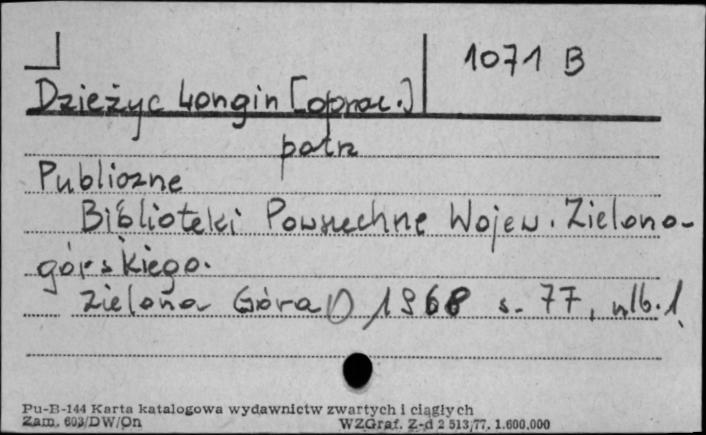 1071 B
Dzieżyc Longin [oprac.]
patrz
Publiczne
Biblioteki Powszechne Wojew. Zielono-
górskiego.
Zielona Góra 1968 s. 77, nlb. 1
Pu-B-144 Karta katalogowa wydawnictw zwartych i ciągłych
Zam. 603/DW/On WZGraf. Z-d 2 513/77. 1.600.000